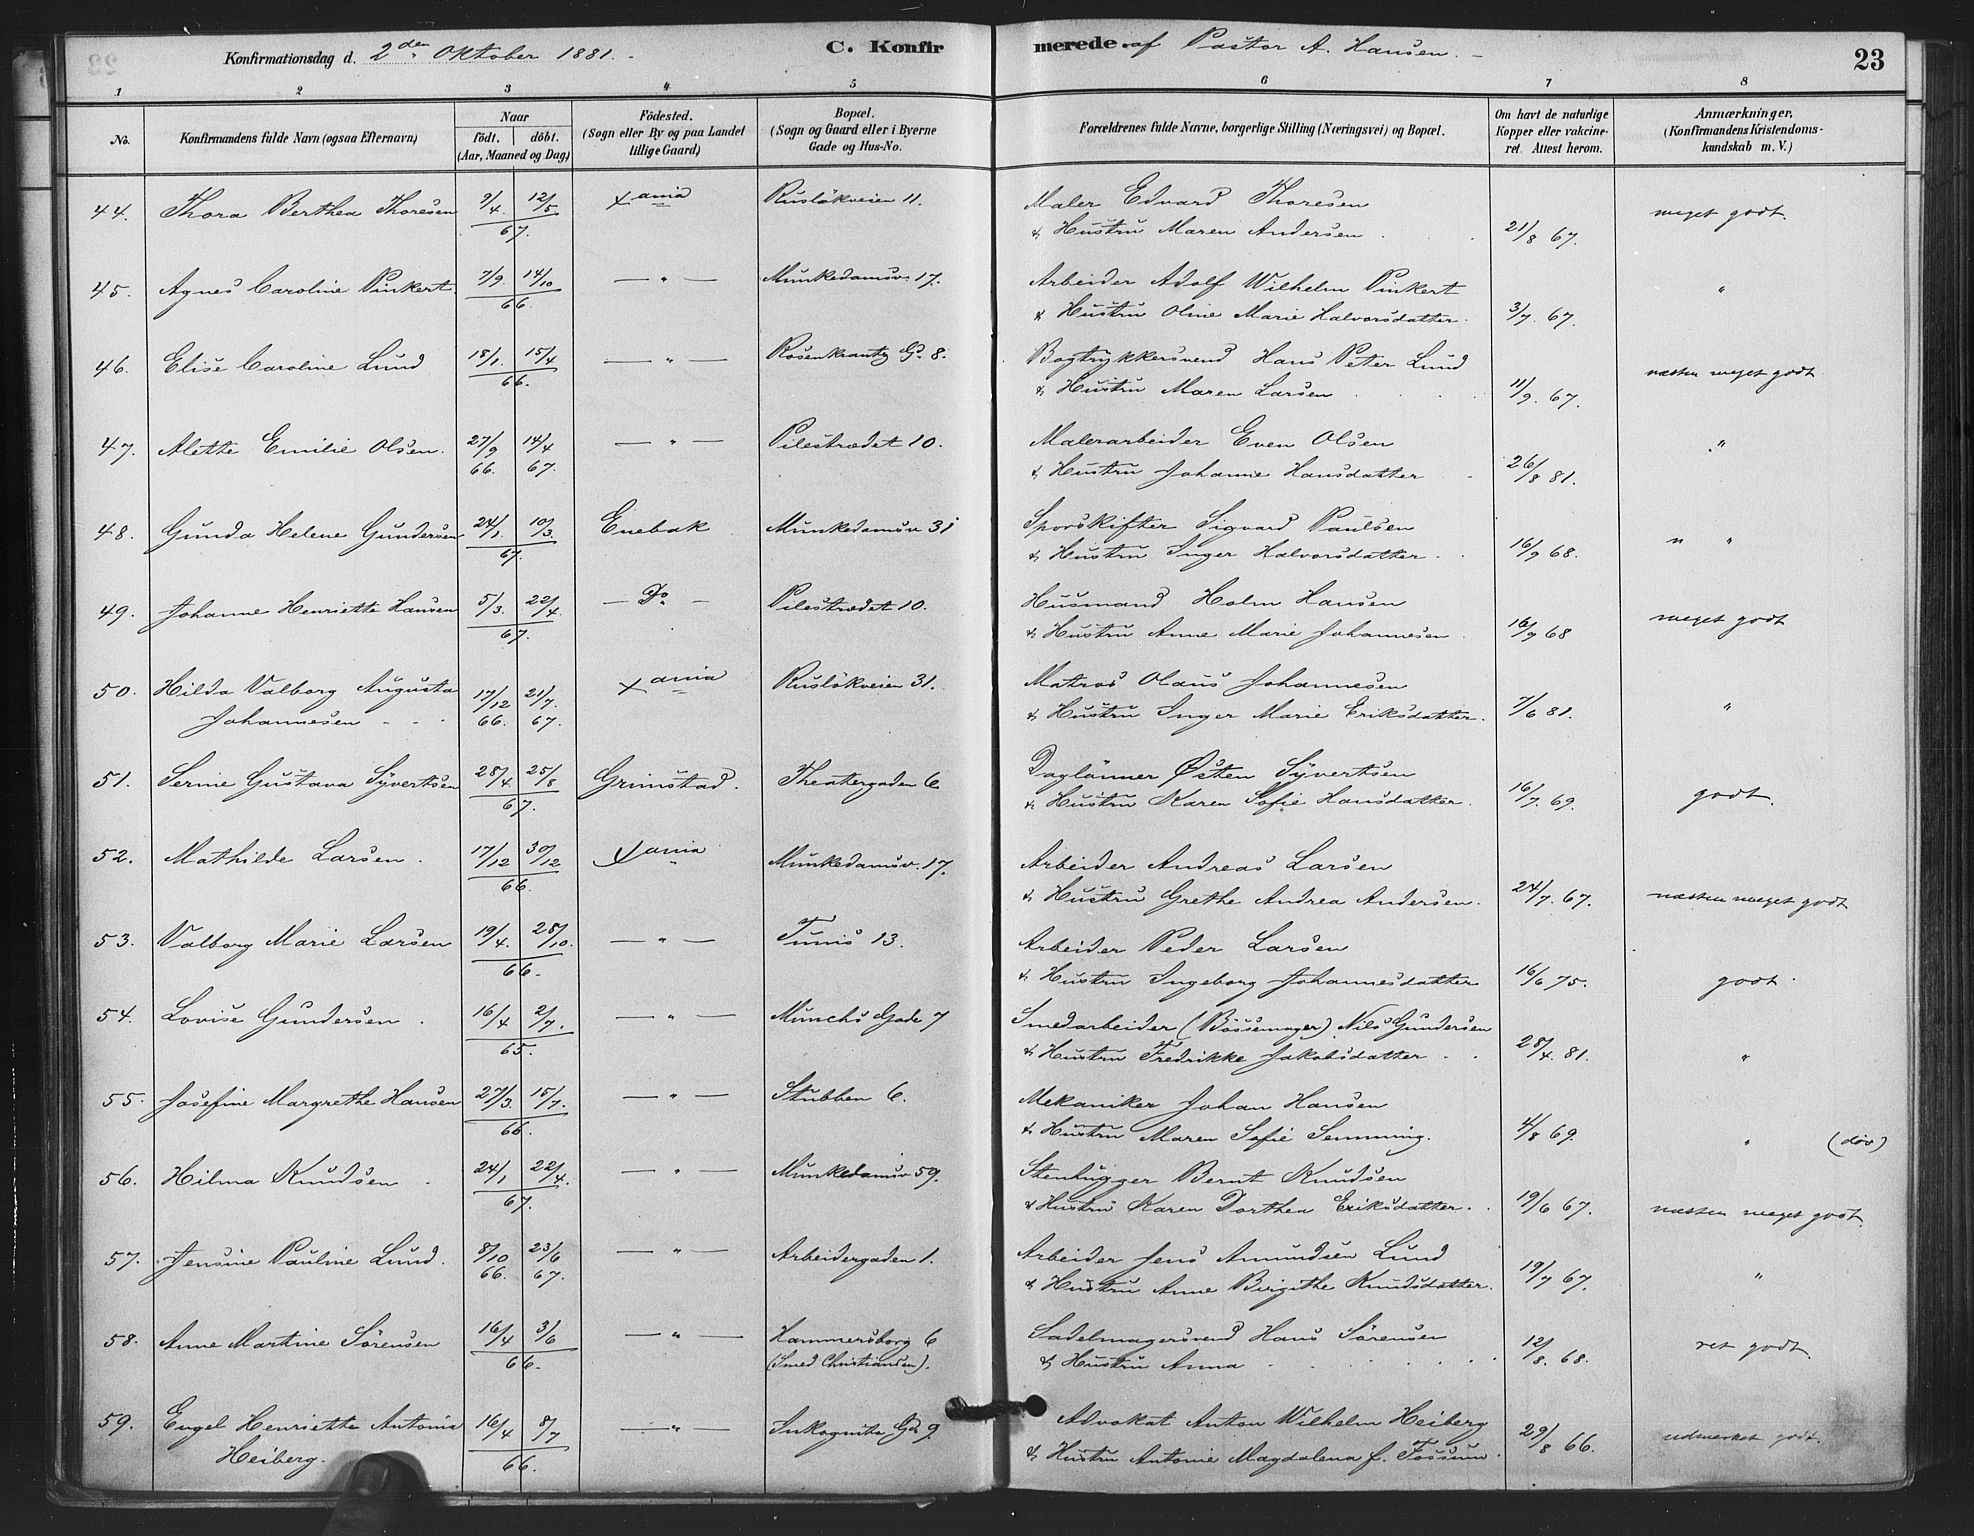 Konfirmationsdag d. 2den Oktober 1881. C. Konfirmerede af Pastor A. Hansen. 23
1 2 3 4 5 6 7 8
No. Konfirmandens fulde Navn (ogsaa Efternavn) Naar födt. döbt. (Aar, Maaned og Dag) Födested. (Sogn eller By og paa Landet tillige Gaard) Bopæl. (Sogn og Gaard eller i Byerne Gade og Hus-No. Forældrenes fulde Navne, borgerlige Stilling (Næringsvei) og Bopæl. Om havt de naturlige Kopper eller vakcineret. Attest herom. Anmærkninger, (Konfirmandens Kristendomskundskab m. V.)
44. Thora Berthea Thoresen 9/4 12/5 67. Xania Rusløkveien 11. Maler Edvard Thoresen
& Hustru Maren Andersen 21/8 67. meget godt.
45. Agnes Caroline Pinkert 7/9 14/10 66. — " — Munkedamsv. 17. Arbeider Adolf Wilhelm Pinkert
& Hustru Oline Marie Halvorsdatter. 3/7. 67. "
46. Elise Caroline Lund 18/1. 15/4 66. — " — Rosenkrantz G. 8. Bogtrykkersvend Hans Peter Lund
& Hustru Maren Larsen 11/9. 67. næsten meget godt
47. Alette Emilie Olsen. 27/9 66. 14/4 67. — " — Pilestrædet 10. Malerarbeider Even Olsen
& Hustru Johanne Hansdatter 26/8 81. "
48. Gunda Helene Gundersen 24/1. 10/3. 67. Enebak Munkedamsv 31 Sporskifter Sigvard Paulsen
& Hustru Inger Halvorsdatter. 16/9 68. " "
49. Johanne Henriette Hansen 5/3. 22/4 67. — Do — Pilestrædet 10. Husmand Holm Hansen
& Hustru Anne Marie Johannesen 16/9 68 meget godt
50. Hilda Valborg Augusta 17/12 66. 21/7. 67. Xania Rusløkveien 31. Matros Olaus Johannesen
Johannesen & Hustru Inger Marie Eriksdatter. 7/6 81. "
51. Serine Gustava Syvertsen 28/4 25/8 67. Grimstad. Theatergaden 6. Daglönner Østen Syvertsen
& Hustru Karen Sofie Hansdatter. 16/7. 69. godt.
52. Mathilde Larsen. 17/12 30/12 66. Xania Munkedamsv. 17. Arbeider Andreas Larsen
& Hustru Grethe Andrea Andersen. 24/7. 67. næsten meget godt
53. Valborg Marie Larsen 19/4. 28/10. 66. — " — Tunis 13. Arbeider Peder Larsen
& Hustru Ingeborg Johannesdatter 16/6 75. godt.
54. Lovise Gundersen 16/4 2/7. 65. — " — Munchs Gade 7 Smedarbeider (Bøssemager) Nils Gundersen
& Hustru Fredrikke Jakobsdatter 28/4. 81. "
55. Josefine Margrethe Hansen 27/3. 15/7. 66. — " — Stubben 6. Mekaniker Johan Hansen
& Hustru Maren Sofie Semming. 4/8 69. " (døv)
56. Hilma Knudsen 24/1 22/4. 67. — " — Munkedamsv 59. Stenhugger Bernt Knudsen
& Hustru Karen Dorthea Eriksdatter. 19/6 67. næsten meget godt
57. Jensine Pauline Lund. 8/10 66. 23/6 67. — " — Arbeidergaden 1. Arbeider Jens Amundsen Lund
& Hustru Anne Birgithe Knudsdatter. 19/7 67. "
58. Anne Martine Sörensen 16/4 3/6 66. — " — Hammersborg 6 Sadelmagersvend Hans Sörensen
(Smed Christiansen). & Hustru Anna 12/8. 68. ret godt.
59. Engel Henriette Antonie 16/4 8/7 66. — " — Inkognito Gd 9. Advokat Anton Wilhelm Heiberg
Heiberg. & Hustru Antonie Magdalena f. Fossum. 29/8 66. udmerket godt.